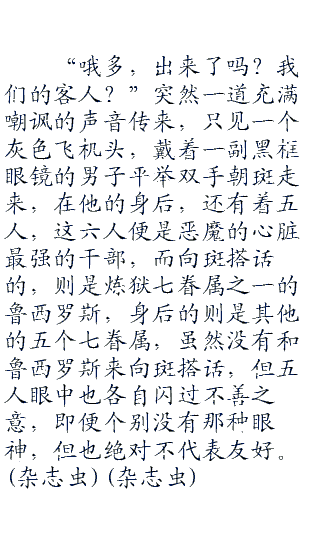 “哦多，出来了吗？我
们的客人？”突然一道充满
嘲讽的声音传来，只见一个
灰色飞机头，戴着一副黑框
眼镜的男子平举双手朝斑走
来，在他的身后，还有着五
人，这六人便是恶魔的心脏
最强的干部，而向斑搭话
的，则是炼狱七眷属之一的
鲁西罗斯，身后的则是其他
的五个七眷属，虽然没有和
鲁西罗斯来向斑搭话，但五
人眼中也各自闪过不善之
意，即便个别没有那种眼
神，但也绝对不代表友好。
(杂志虫)(杂志虫)